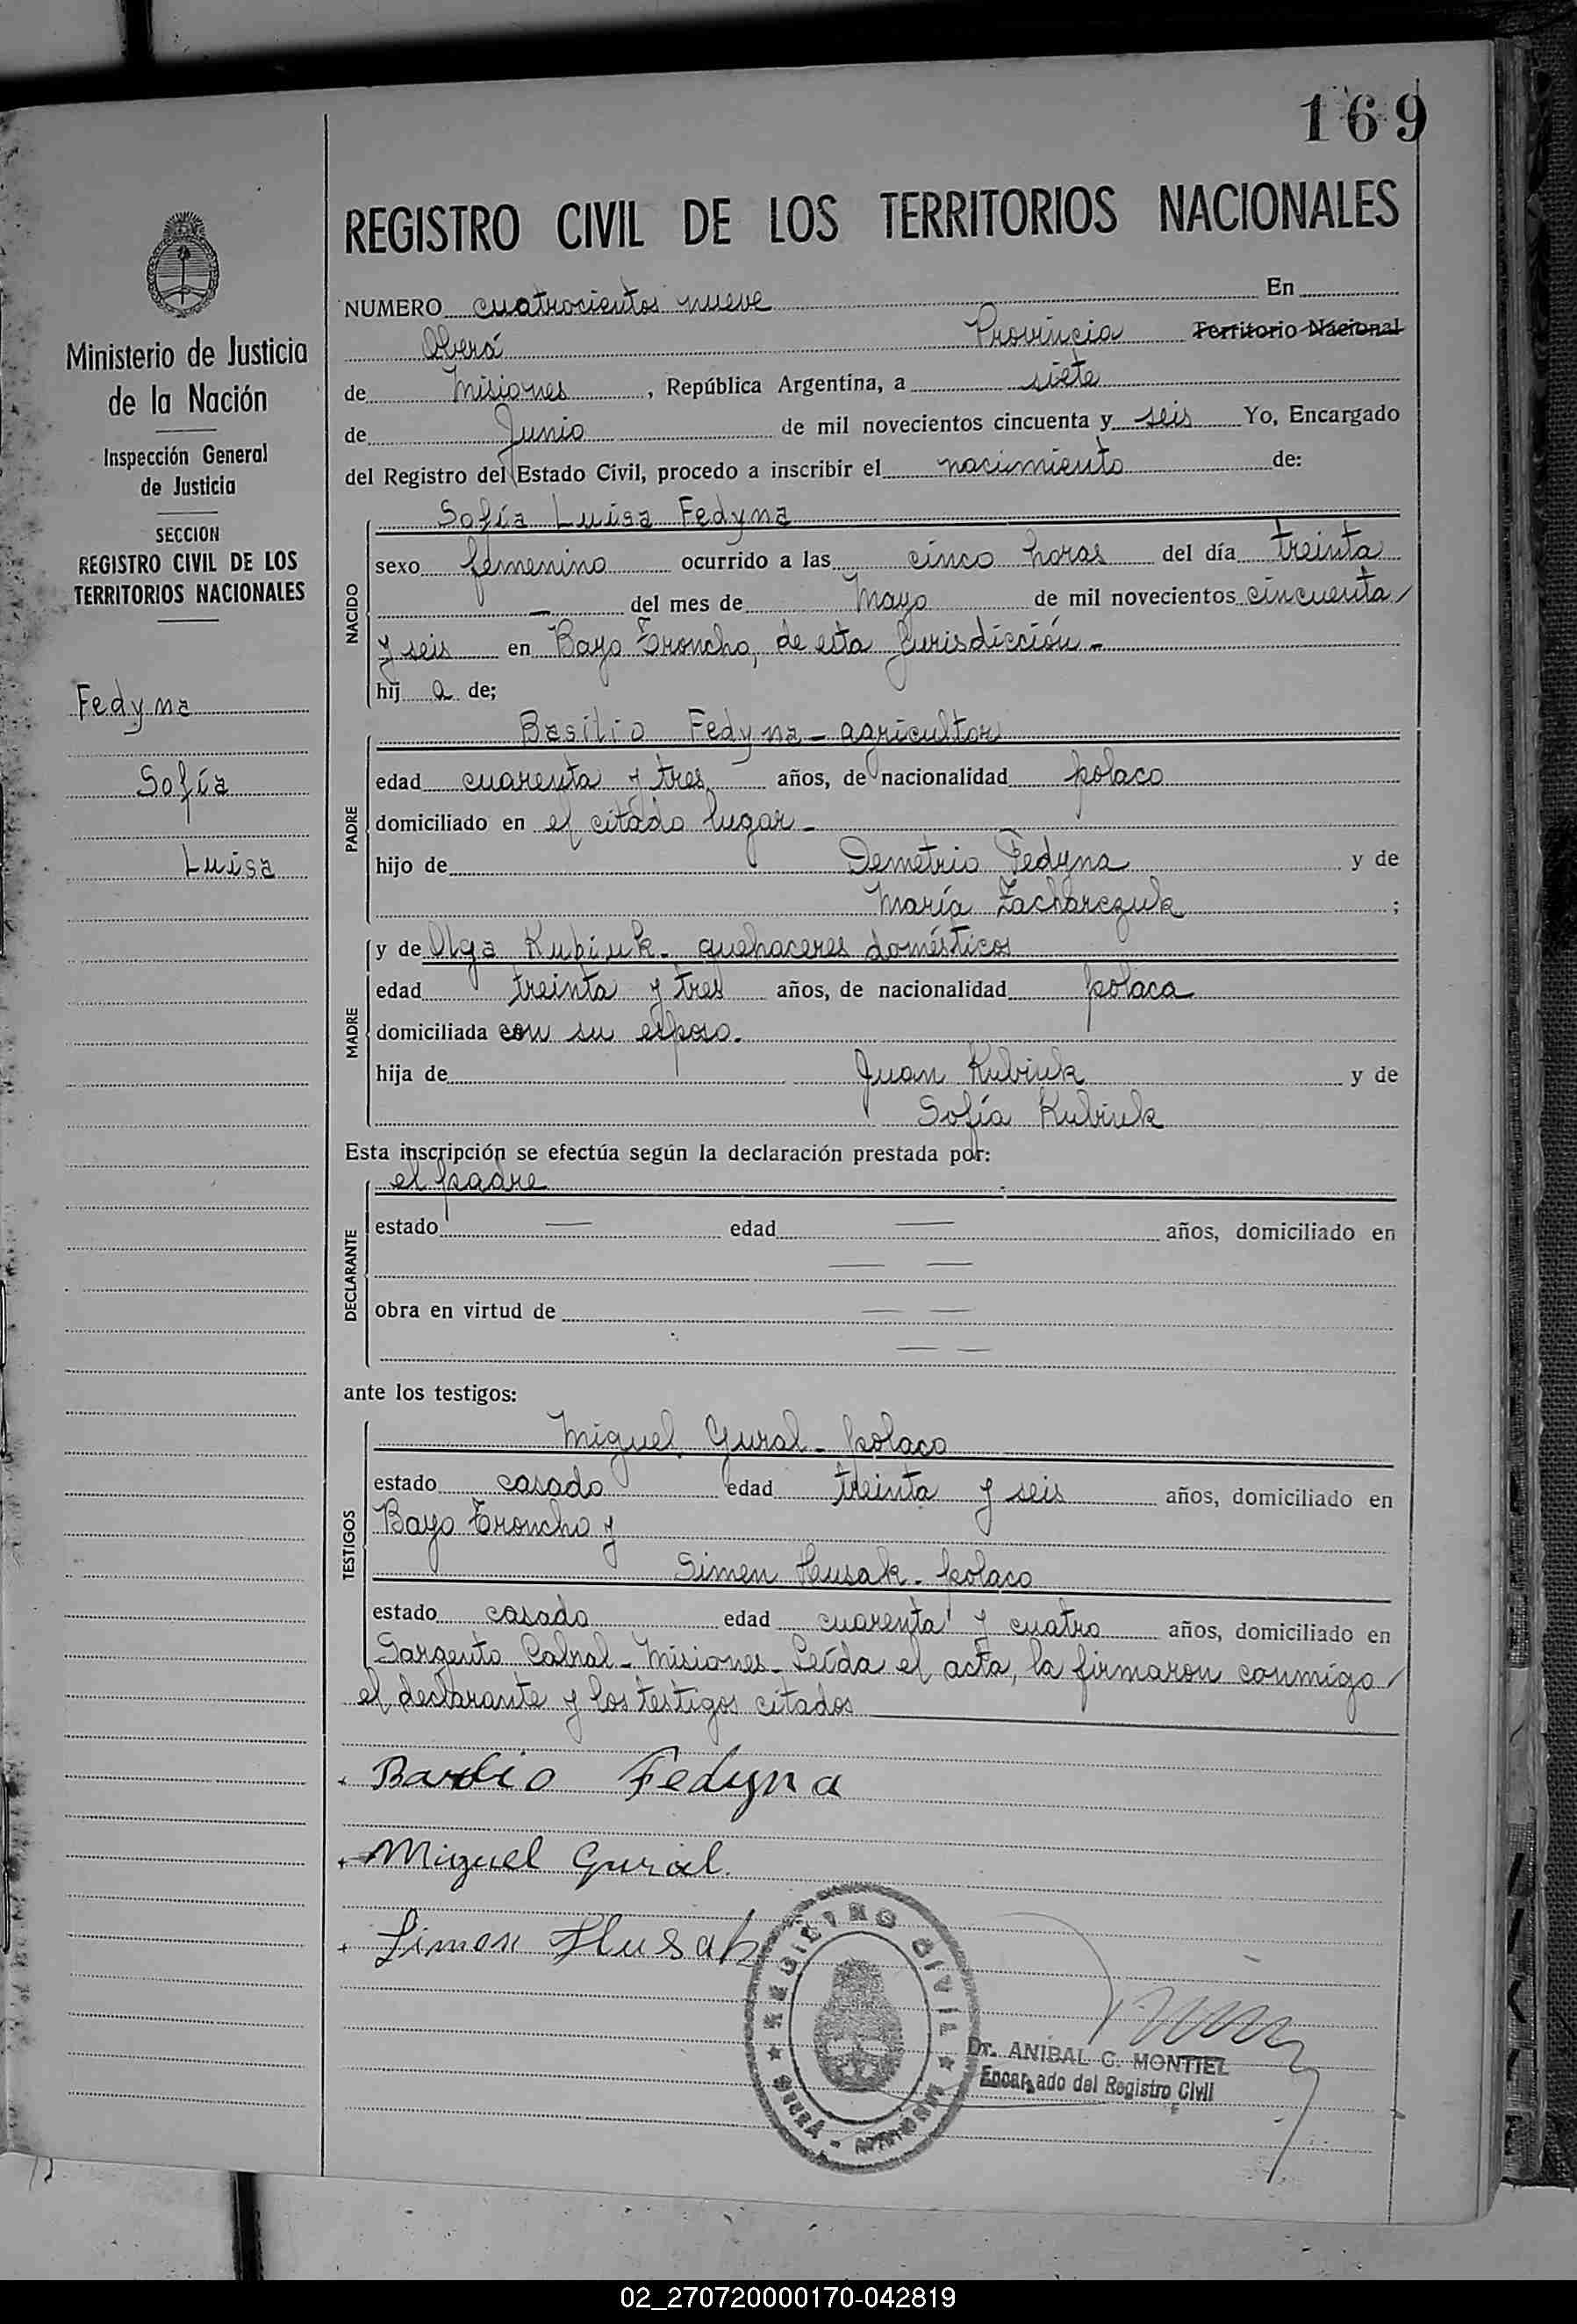 169
REGISTRO CIVIL DE LOS TERRITORIOS NACIONALES
Ministerio de Justicia
de la Nación
Inspección General
de Justicia
SECCION
REGISTRO CIVIL DE LOS
TERRITORIOS NACIONALES
Fedyna
Sofía
Luisa
NUMERO cuatrocientos nueve En
Oberá Provincia Territorio Nacional
de Misiones, República Argentina, a siete
de Junio de mil novecientos cincuenta y seis Yo, Encargado
del Registro del Estado Civil, procedo a inscribir el nacimiento de:
NACIDO
Sofía Luisa Fedyna
sexo femenino ocurrido a las cinco horas del día treinta
— del mes de Mayo de mil novecientos cincuenta/
y seis en Bayo Troncho, de esta Jurisdicción.-
hij a de;
PADRE
Basilio Fedyna - agricultor
edad cuarenta y tres años, de nacionalidad polaco
domiciliado en el citado lugar-
hijo de Demetrio Fedyna y de
María Zacharczuk ;
MADRE
y de Olga Kubiuk- quehaceres domésticos
edad treinta y tres años, de nacionalidad polaca
domiciliada con su esposo.
hija de Juan Kubiuk y de
Sofía Kubiuk
Esta inscripción se efectúa según la declaración prestada por:
DECLARANTE
el padre
estado — edad — años, domiciliado en
— —
obra en virtud de — —
— —
ante los testigos:
TESTIGOS
Miguel Gural- polaco
estado casado edad treinta y seis años, domiciliado en
Bayo Troncho y
Simen Husak- polaco
estado casado edad cuarenta y cuatro años, domiciliado en
Sargento Cabral- Misiones- Leída el acta, la firmaron conmigo/
el declarante y los testigos citados
Basilio Fedyna
Miguel Gural.
Simon Husak
REGISTRO CIVIL
OBERÁ - MISIONES
Dr. ANIBAL G. MONTIEL
Encargado del Registro Civil
02_270720000170-042819